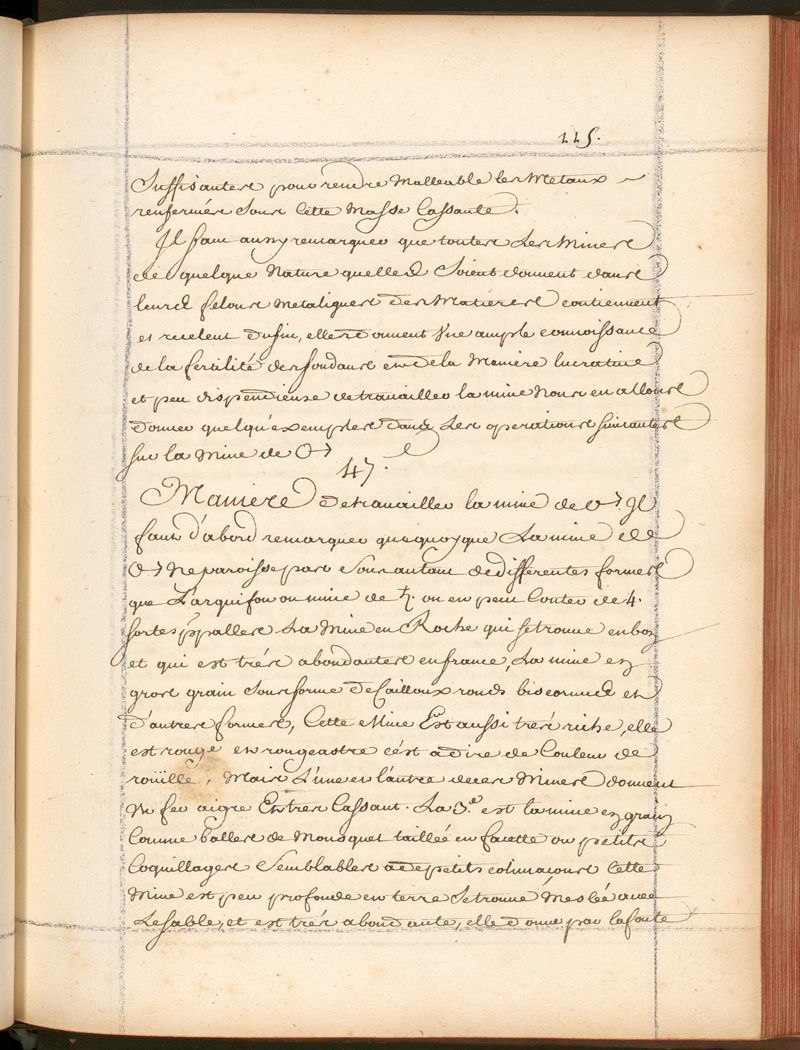 115.
Suffisantes pour rendre malleable les Metaux
renfermés sous Cette Masse Cassante.
Il faut aussy remarquer que toutes Les Mines
de quelque Nature quelles Soient donnent dans
leurs filons metaliques des Matieres contiennent
et recelent du fin, elles donnent Vne ample connoissance
de la fertilité des fondans et de la Maniere lucrative
et peu dispendieuse de travailler la mine Nous en allons
donner quelq'exemples dans Les operations suivantes
sur la Mine de ♂
47.
Maniere de travailler la mine de ♂ Il
faut d'abord remarquer que quoy que La mine de
♂ Ne paroisse pas Sous autant de differentes formes
que L'arquifou ou mine de ♄. on en peut Conter de 4.
sortes ppalles La Mine en Roche qui se trouve en
et qui est trés abondantes en france, La mine en
gros grain Sous forme de Cailloux ronds biscornus et
d'autres formes, Cette Mine Est aussi trés riche, elle
est rouge ou rougeastre c'ést a dire de Couleur de
roüille, Mais L'une et l'autre de ces Mines donnent
Vn fer aigre Et tres Cassant. La 3.e est la mine en grain
Comme balles de Mousquet taillée en facette ou petits
Coquillages Semblables a de petits colimacons Cette
Mine est peu profonde en terre Se trouve Meslée avec
Le sable, et est trés abondante, elle donne par la fonte